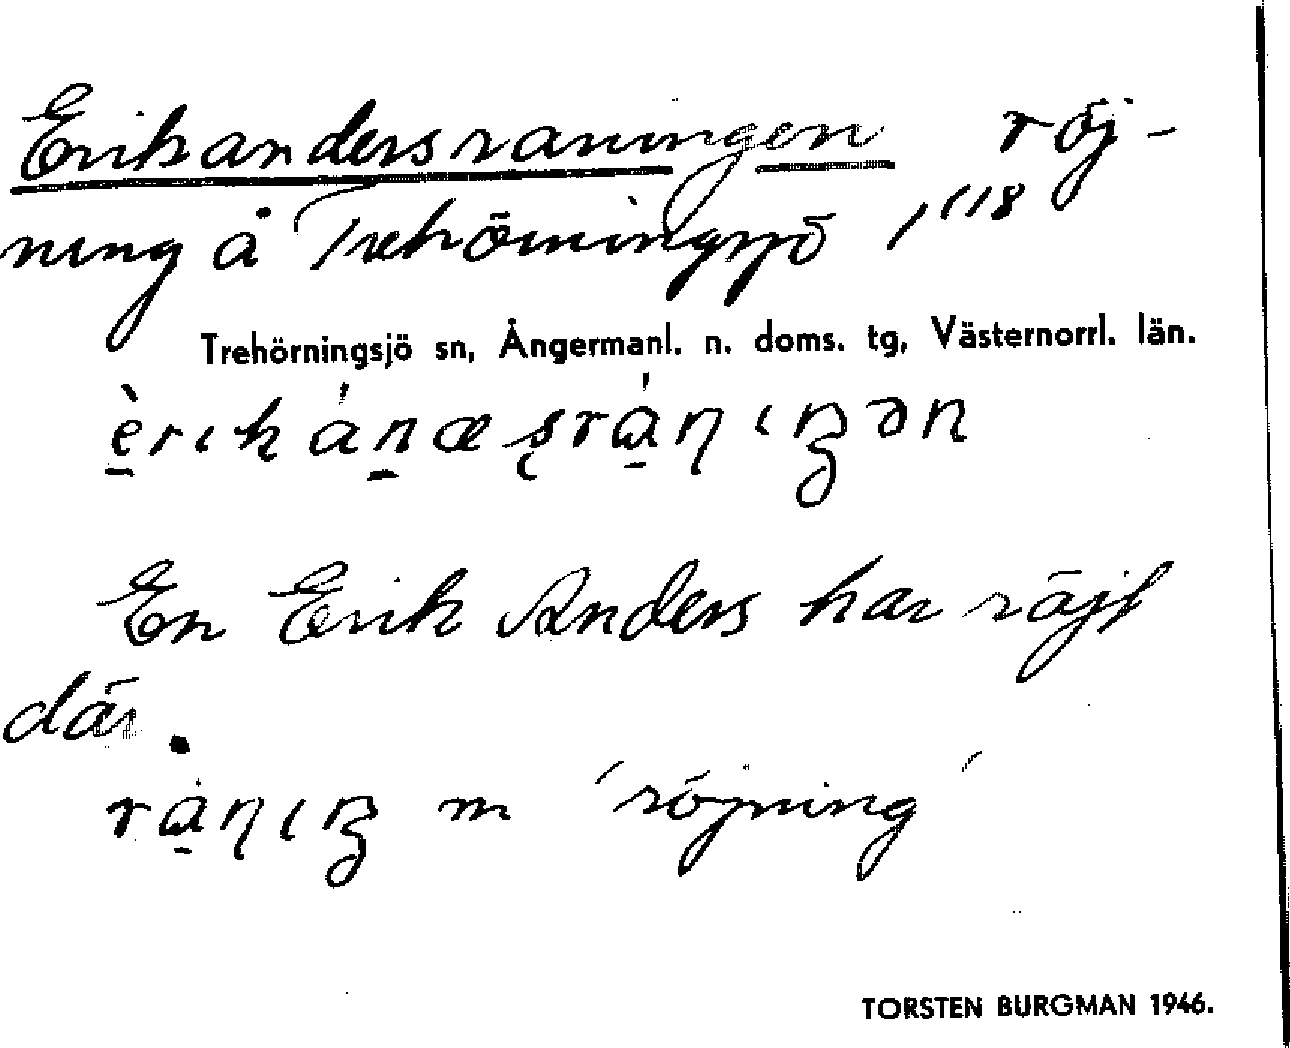 Erikandersraningen röj-
ning å Trehörningsjö 1/18
Trehörningsjö sn, Ångermanl. n. doms. tg, Västernorrl. län.
En Erik Anders har röjt
där.
m 'röjning'
TORSTEN BURGMAN 1946.